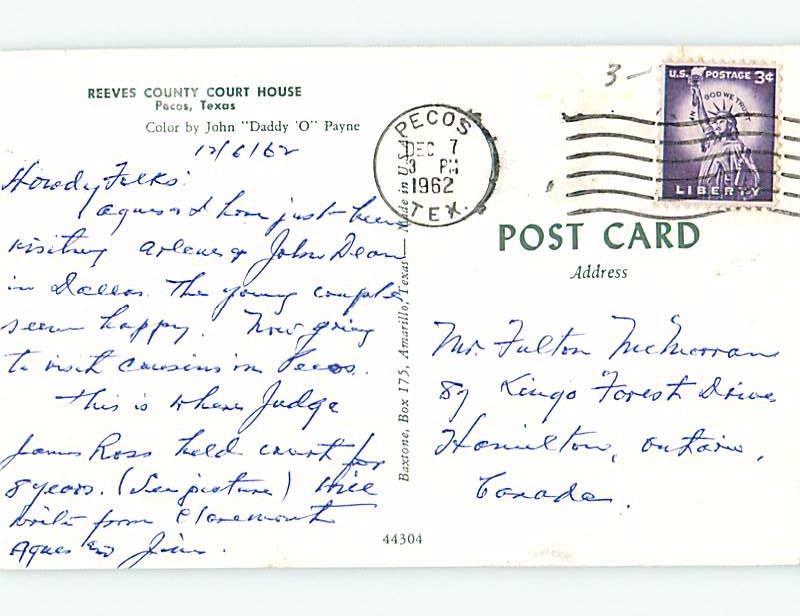 REEVES COUNTY COURT HOUSE
Pecos, Texas
Color by John "Daddy 'O" Payne
12/6/62
Howdy Folks:
Agnes & I have just been
visiting Arlene & John Dean
in Dallas. The young couple
seem happy. Now going
to visit cousins in Pecos.
This is where Judge
James Ross held court for
8 years. (See picture) Will
write from Claremont
Agnes and Jim.
Baxtone, Box 175, Amarillo, Texas — Made in U.S.A.
44304
PECOS
DEC 7
3 PM
1962
TEX.
3-
U.S. POSTAGE 3¢
IN GOD WE TRUST
LIBERTY
POST CARD
Address
Mr. Fulton McMorran
87 Kings Forest Drive
Hamilton, Ontario,
Canada.